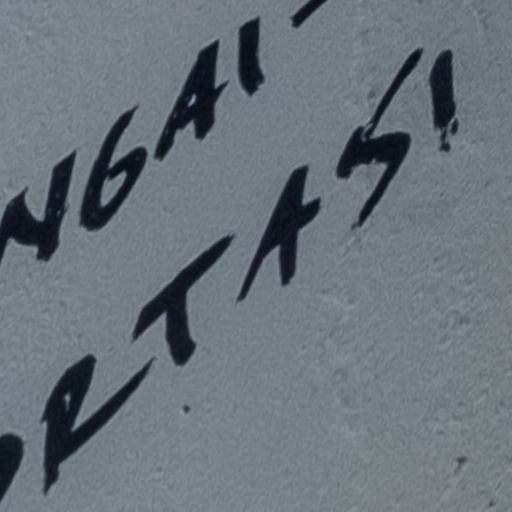 NGAI
RTAS!